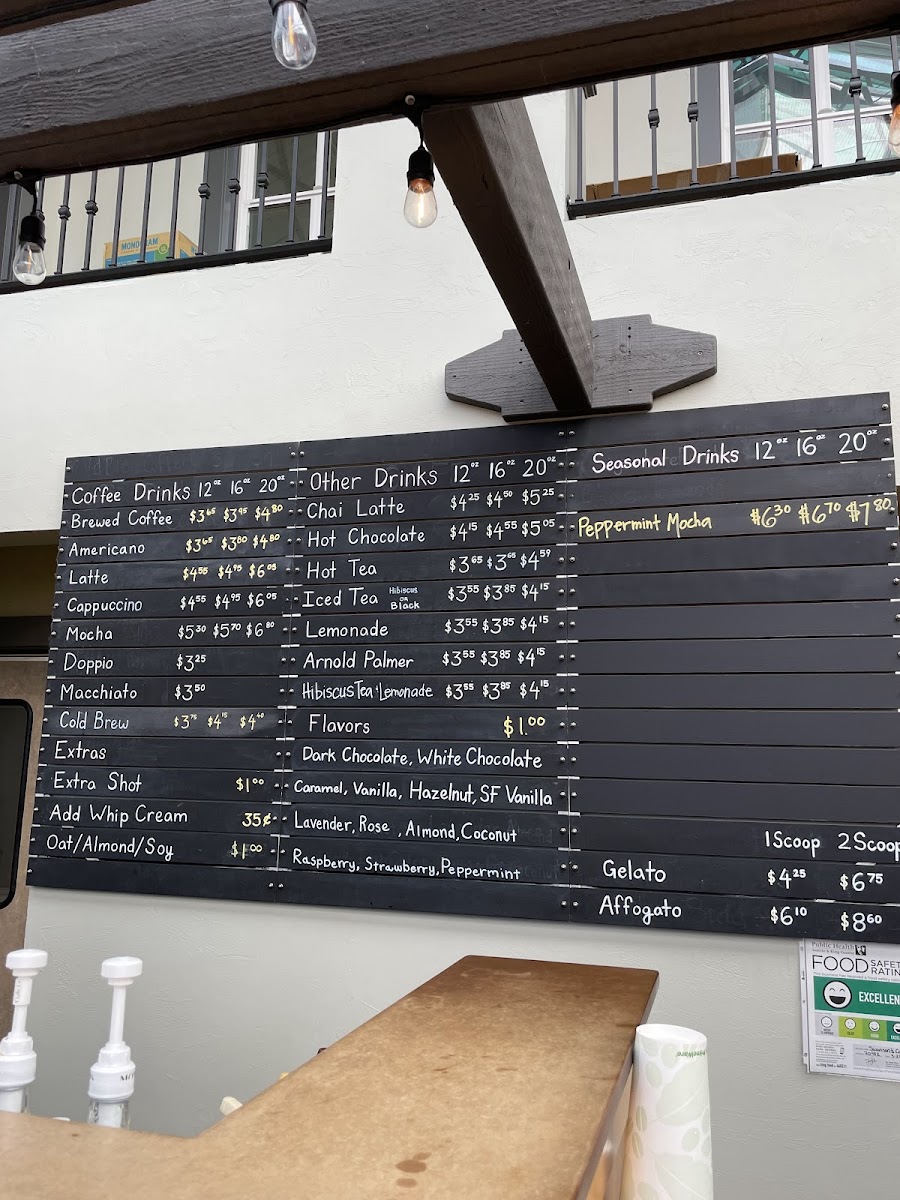 Coffee Drinks 12oz 16oz 20oz
Brewed Coffee $3.65 $3.95 $4.80
Americano $3.65 $3.80 $4.80
Latte $4.55 $4.95 $6.05
Cappuccino $4.55 $4.95 $6.05
Mocha $5.30 $5.70 $6.80
Doppio $3.25
Macchiato $3.50
Cold Brew $3.75 $4.15 $4.40
Extras
Extra Shot $1.00
Add Whip Cream 35¢
Oat/Almond/Soy $1.00
Other Drinks 12oz 16oz 20oz
Chai Latte $4.25 $4.50 $5.25
Hot Chocolate $4.15 $4.55 $5.05
Hot Tea $3.65 $3.65 $4.59
Iced Tea Hibiscus OR Black $3.55 $3.85 $4.15
Lemonade $3.55 $3.85 $4.15
Arnold Palmer $3.55 $3.85 $4.15
Hibiscus Tea + Lemonade $3.55 $3.85 $4.15
Flavors $1.00
Dark Chocolate, White Chocolate
Caramel, Vanilla, Hazelnut, SF Vanilla
Lavender, Rose, Almond, Coconut
Raspberry, Strawberry, Peppermint
Seasonal Drinks 12oz 16oz 20oz
Peppermint Mocha $6.30 $6.70 $7.80
1 Scoop 2 Scoop
Gelato $4.25 $6.75
Affogato $6.10 $8.60
Public Health
FOOD SAFETY
RATIN
EXCELLEN